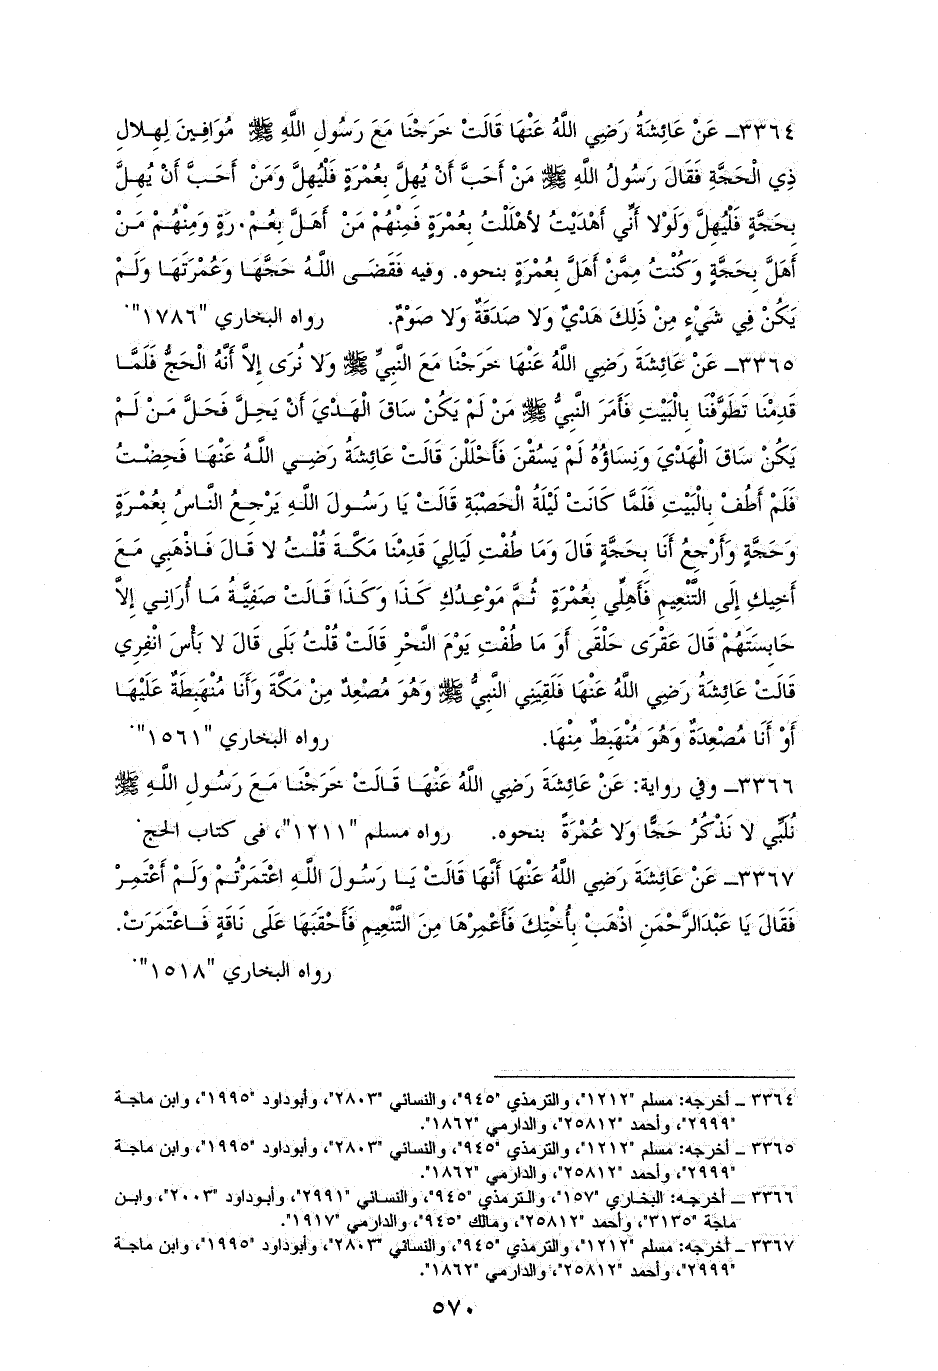 ٣٣٦٤ـ عَنْ عَائِشَةُ رَضِي اللَّهُ عَنْهَا قَالَتْ خَرَجْنَا مَعَ رَسُولِ اللَّهِ ﷺ مُوَافِينَ لِهِلالِ
ذِي الْحَجَّةِ فَقَالَ رَسُولُ اللَّهِ ﷺ مَنْ أَحَبَّ أَنْ يُهِلَّ بِعُمْرَةٍ فَلْيُهِلَّ وَمَنْ أَحَبَّ أَنْ يُهِلَّ
بِحَجَّةٍ فَلْيُهِلَّ وَلَوْلا أَنِّي أَهْدَيْتُ لأَهْلَلْتُ بِعُمْرَةٍ فَمِنْهُمْ مَنْ أَهَلَّ بِعُمْ.رَةٍ وَمِنْهُمْ مَنْ
أَهَلَّ بِحَجَّةٍ وَكُنْتُ مِمَّنْ أَهَلَّ بِعُمْرَةٍ بنحوه. وفيه فَقَضَى اللَّهُ حَجَّهَا وَعُمْرَتَهَا وَلَمْ
يَكُنْ فِي شَيْءٍ مِنْ ذَلِكَ هَدْيٌ وَلا صَدَقَةٌ وَلا صَوْمٌ. رواه البخاري "١٧٨٦".
٣٣٦٥ـ عَنْ عَائِشَةَ رَضِي اللَّهُ عَنْهَا خَرَجْنَا مَعَ النَّبِيِّ ﷺ وَلا نُرَى إِلاَّ أَنَّهُ الْحَجُّ فَلَمَّا
قَدِمْنَا تَطَوَّفْنَا بِالْبَيْتِ فَأَمَرَ النَّبِيُّ ﷺ مَنْ لَمْ يَكُنْ سَاقَ الْهَدْيَ أَنْ يَحِلَّ فَحَلَّ مَنْ لَمْ
يَكُنْ سَاقَ الْهَدْيَ وَنِسَاؤُهُ لَمْ يَسُقْنَ فَأَحْلَلْنَ قَالَتْ عَائِشَةُ رَضِي اللَّهُ عَنْهَا فَحِضْتُ
فَلَمْ أَطُفْ بِالْبَيْتِ فَلَمَّا كَانَتْ لَيْلَةُ الْحَصْبَةِ قَالَتْ يَا رَسُولَ اللَّهِ يَرْجِعُ النَّاسُ بِعُمْرَةٍ
وَحَجَّةٍ وَأَرْجِعُ أَنَا بِحَجَّةٍ قَالَ وَمَا طُفْتِ لَيَالِيَ قَدِمْنَا مَكَّةَ قُلْتُ لا قَالَ فَاذْهَبِي مَعَ
أَخِيكِ إِلَى التَّنْعِيمِ فَأَهِلِّي بِعُمْرَةٍ ثُمَّ مَوْعِدُكِ كَذَا وَكَذَا قَالَتْ صَفِيَّةُ مَا أُرَانِي إِلاَّ
حَابِسَتَهُمْ قَالَ عَقْرَى حَلْقَى أَوَ مَا طُفْتِ يَوْمَ النَّحْرِ قَالَتْ قُلْتُ بَلَى قَالَ لا بَأْسَ انْفِرِي
قَالَتْ عَائِشَةُ رَضِي اللَّهُ عَنْهَا فَلَقِيَنِي النَّبِيُّ ﷺ وَهُوَ مُصْعِدٌ مِنْ مَكَّةَ وَأَنَا مُنْهَبِطَةٌ عَلَيْهَا
أَوْ أَنَا مُصْعِدَةٌ وَهُوَ مُنْهَبِطٌ مِنْهَا. رواه البخاري "١٥٦١".
٣٣٦٦ـ وفي رواية: عَنْ عَائِشَةَ رَضِي اللَّهُ عَنْهَا قَالَتْ خَرَجْنَا مَعَ رَسُولِ اللَّهِ ﷺ
نُلَبِّي لا نَذْكُرُ حَجًّا وَلا عُمْرَةً بنحوه. رواه مسلم "١٢١١"، في كتاب الحج.
٣٣٦٧ـ عَنْ عَائِشَةَ رَضِي اللَّهُ عَنْهَا أَنَّهَا قَالَتْ يَا رَسُولَ اللَّهِ اعْتَمَرْتُمْ وَلَمْ أَعْتَمِرْ
فَقَالَ يَا عَبْدَالرَّحْمَنِ اذْهَبْ بِأُخْتِكَ فَأَعْمِرْهَا مِنَ التَّنْعِيمِ فَأَحْقَبَهَا عَلَى نَاقَةٍ فَاعْتَمَرَتْ.
رواه البخاري "١٥١٨".
٣٣٦٤ ـ أخرجه: مسلم "١٢١٢"، والترمذي "٩٤٥"، والنسائي "٢٨٠٣"، وأبوداود "١٩٩٥"، وابن ماجة
"٢٩٩٩"، وأحمد "٢٥٨١٢"، والدارمي "١٨٦٢".
٣٣٦٥ ـ أخرجه: مسلم "١٢١٢"، والترمذي "٩٤٥"، والنسائي "٢٨٠٣"، وأبوداود "١٩٩٥"، وابن ماجة
"٢٩٩٩"، وأحمد "٢٥٨١٢"، والدارمي "١٨٦٢".
٣٣٦٦ ـ أخرجه: البخاري "١٥٧"، والترمذي "٩٤٥"، والنسائي "٢٩٩١"، وأبوداود "٢٠٠٣"، وابن
ماجة "٣١٣٥"، وأحمد "٢٥٨١٢"، ومالك "٩٤٥"، والدارمي "١٩١٧".
٣٣٦٧ ـ أخرجه: مسلم "١٢١٢"، والترمذي "٩٤٥"، والنسائي "٢٨٠٣"، وأبوداود "١٩٩٥"، وابن ماجة
"٢٩٩٩"، وأحمد "٢٥٨١٢"، والدارمي "١٨٦٢".
٥٧٠